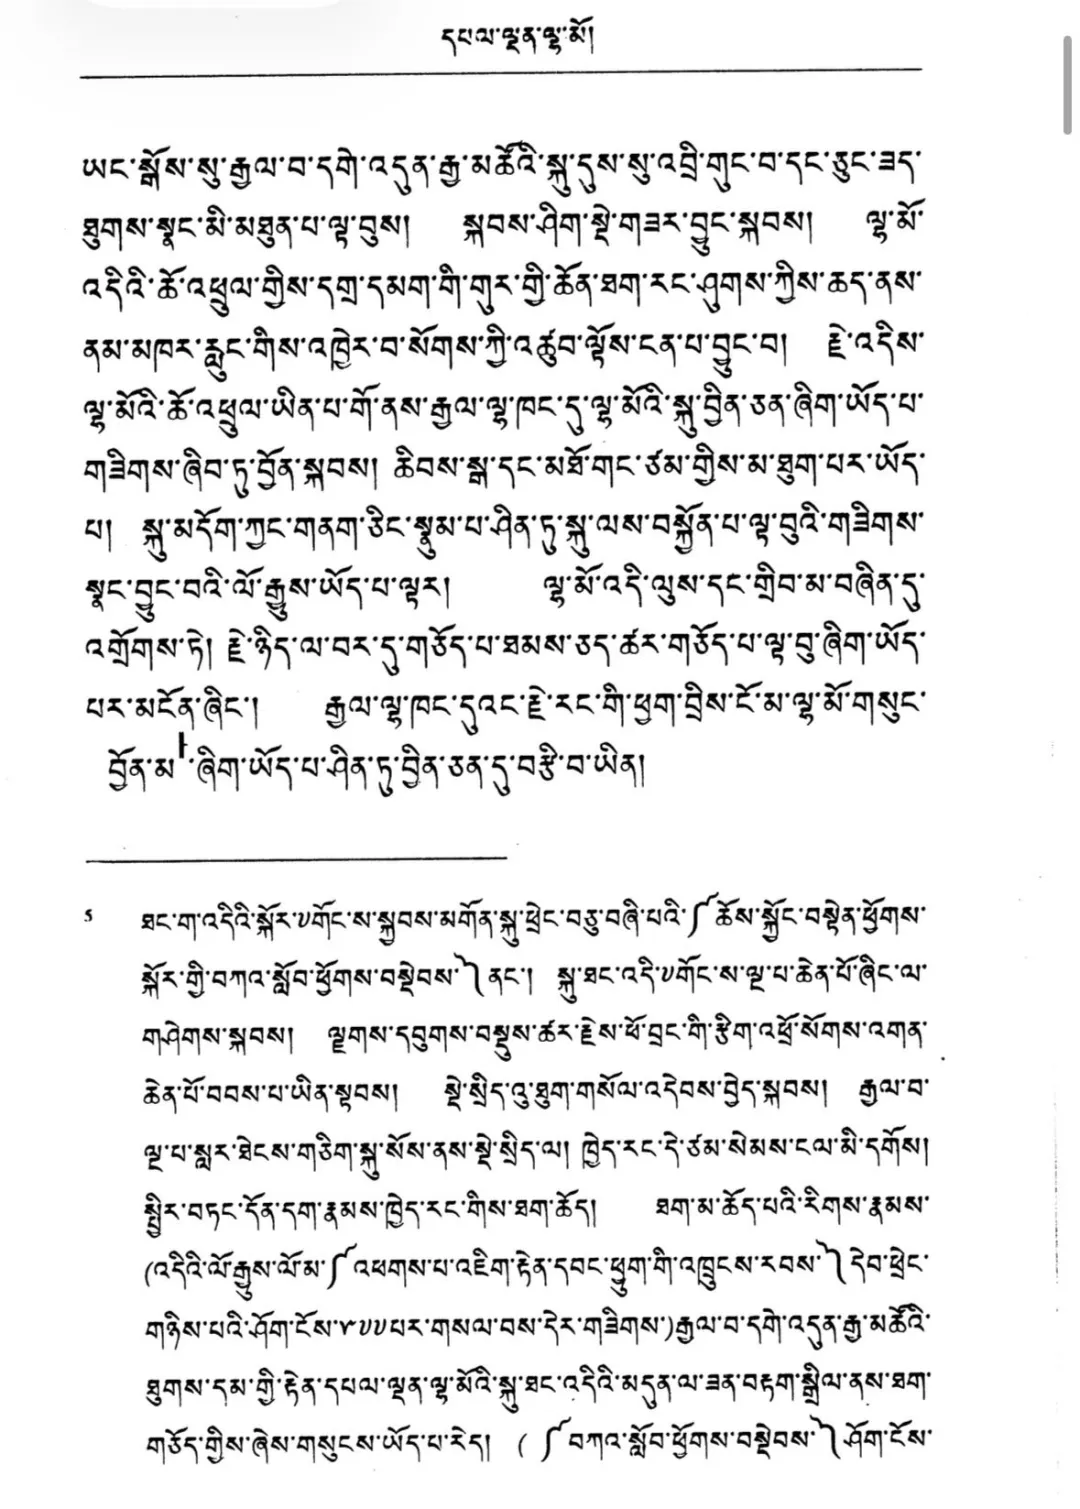 དཔལ་ལྡན་ལྷ་མོ།
ཡང་སྒོས་སུ་རྒྱལ་བ་དགེ་འདུན་རྒྱ་མཚོའི་སྐུ་དུས་སུ་འབྲི་གུང་བ་དང་ཅུང་ཟད་
ཐུགས་སྣང་མི་མཐུན་པ་ལྟ་བུས། སྐབས་ཤིག་སྡེ་གཟར་བྱུང་སྐབས། ལྷ་མོ་
འདིའི་ཆོ་འཕྲུལ་གྱིས་དགྲ་དམག་གི་གུར་གྱི་ཆོན་ཐག་རང་ཤུགས་ཀྱིས་ཆད་ནས་
ནམ་མཁར་རླུང་གིས་འཁྱེར་བ་སོགས་ཀྱི་འཚུབ་ལྟོས་ངན་པ་བྱུང་བ། རྗེ་འདིས་
ལྷ་མོའི་ཆོ་འཕྲུལ་ཡིན་པ་གོ་ནས་རྒྱལ་ལྷ་ཁང་དུ་ལྷ་མོའི་སྐུ་བྱིན་ཅན་ཞིག་ཡོད་པ་
གཟིགས་ཞིབ་ཏུ་བྱོན་སྐབས། ཆིབས་སྒ་དང་མཐོ་གང་ཙམ་གྱིས་མ་ཐུག་པར་ཡོད་
པ། སྐུ་མདོག་ཀྱང་གནག་ཅིང་སྣུམ་པ་ཤིན་ཏུ་སྐུ་ལས་བསྐྱོན་པ་ལྟ་བུའི་གཟིགས་
སྣང་བྱུང་བའི་ལོ་རྒྱུས་ཡོད་པ་ལྟར། ལྷ་མོ་འདི་ལུས་དང་གྲིབ་མ་བཞིན་དུ་
འགྲོགས་ཏེ། རྗེ་ཉིད་ལ་བར་དུ་གཅོད་པ་ཐམས་ཅད་ཚར་གཅོད་པ་ལྟ་བུ་ཞིག་ཡོད་
པར་མངོན་ཞིང་། རྒྱལ་ལྷ་ཁང་དུའང་རྗེ་རང་གི་ཕྱག་བྲིས་ངོ་མ་ལྷ་མོ་གསུང་
བྱོན་མ་ཞིག་ཡོད་པ་ཤིན་ཏུ་བྱིན་ཅན་དུ་བརྩི་བ་ཡིན།
5 ཐང་ག་འདིའི་སྐོར་༧གོང་ས་སྐྱབས་མགོན་སྐུ་ཕྲེང་བཅུ་བཞི་པའི་༼ཆོས་སྐྱོང་བསྟེན་ཕྱོགས་
སྐོར་གྱི་བཀའ་སློབ་ཕྱོགས་བསྡེབས་༽ནང་། སྐུ་ཐང་འདི་༧གོང་ས་ལྔ་པ་ཆེན་པོ་ཞིང་ལ་
གཤེགས་སྐབས། ལྗགས་དབུགས་བསྡུས་ཚར་རྗེས་ཕོ་བྲང་གི་རྩིག་འཕྲོ་སོགས་འགན་
ཆེན་པོ་བབས་པ་ཡིན་སྟབས། སྡེ་སྲིད་འུ་ཐུག་གསོལ་འདེབས་བྱེད་སྐབས། རྒྱལ་བ་
ལྔ་པ་སླར་ཐེངས་གཅིག་སྐུ་སོས་ནས་སྡེ་སྲིད་ལ། ཁྱེད་རང་དེ་ཙམ་སེམས་ངལ་མི་དགོས།
སྤྱིར་བཏང་དོན་དག་རྣམས་ཁྱེད་རང་གིས་ཐག་ཆོད། ཐག་མ་ཆོད་པའི་རིགས་རྣམས་
(འདིའི་ལོ་རྒྱུས་ལོ་མ་༼འཕགས་པ་འཇིག་རྟེན་དབང་ཕྱུག་གི་འཁྲུངས་རབས་༽དེབ་ཕྲེང་
གཉིས་པའི་ཤོག་ངོས་༤༧༧པར་གསལ་བས་དེར་གཟིགས་)རྒྱལ་བ་དགེ་འདུན་རྒྱ་མཚོའི་
ཐུགས་དམ་གྱི་རྟེན་དཔལ་ལྡན་ལྷ་མོའི་སྐུ་ཐང་འདིའི་མདུན་ལ་ཟན་བརྟག་སྒྲིལ་ནས་ཐག་
གཅོད་གྱིས་ཞེས་གསུངས་ཡོད་པ་རེད། (༼བཀའ་སློབ་ཕྱོགས་བསྡེབས་༽ཤོག་ངོས་